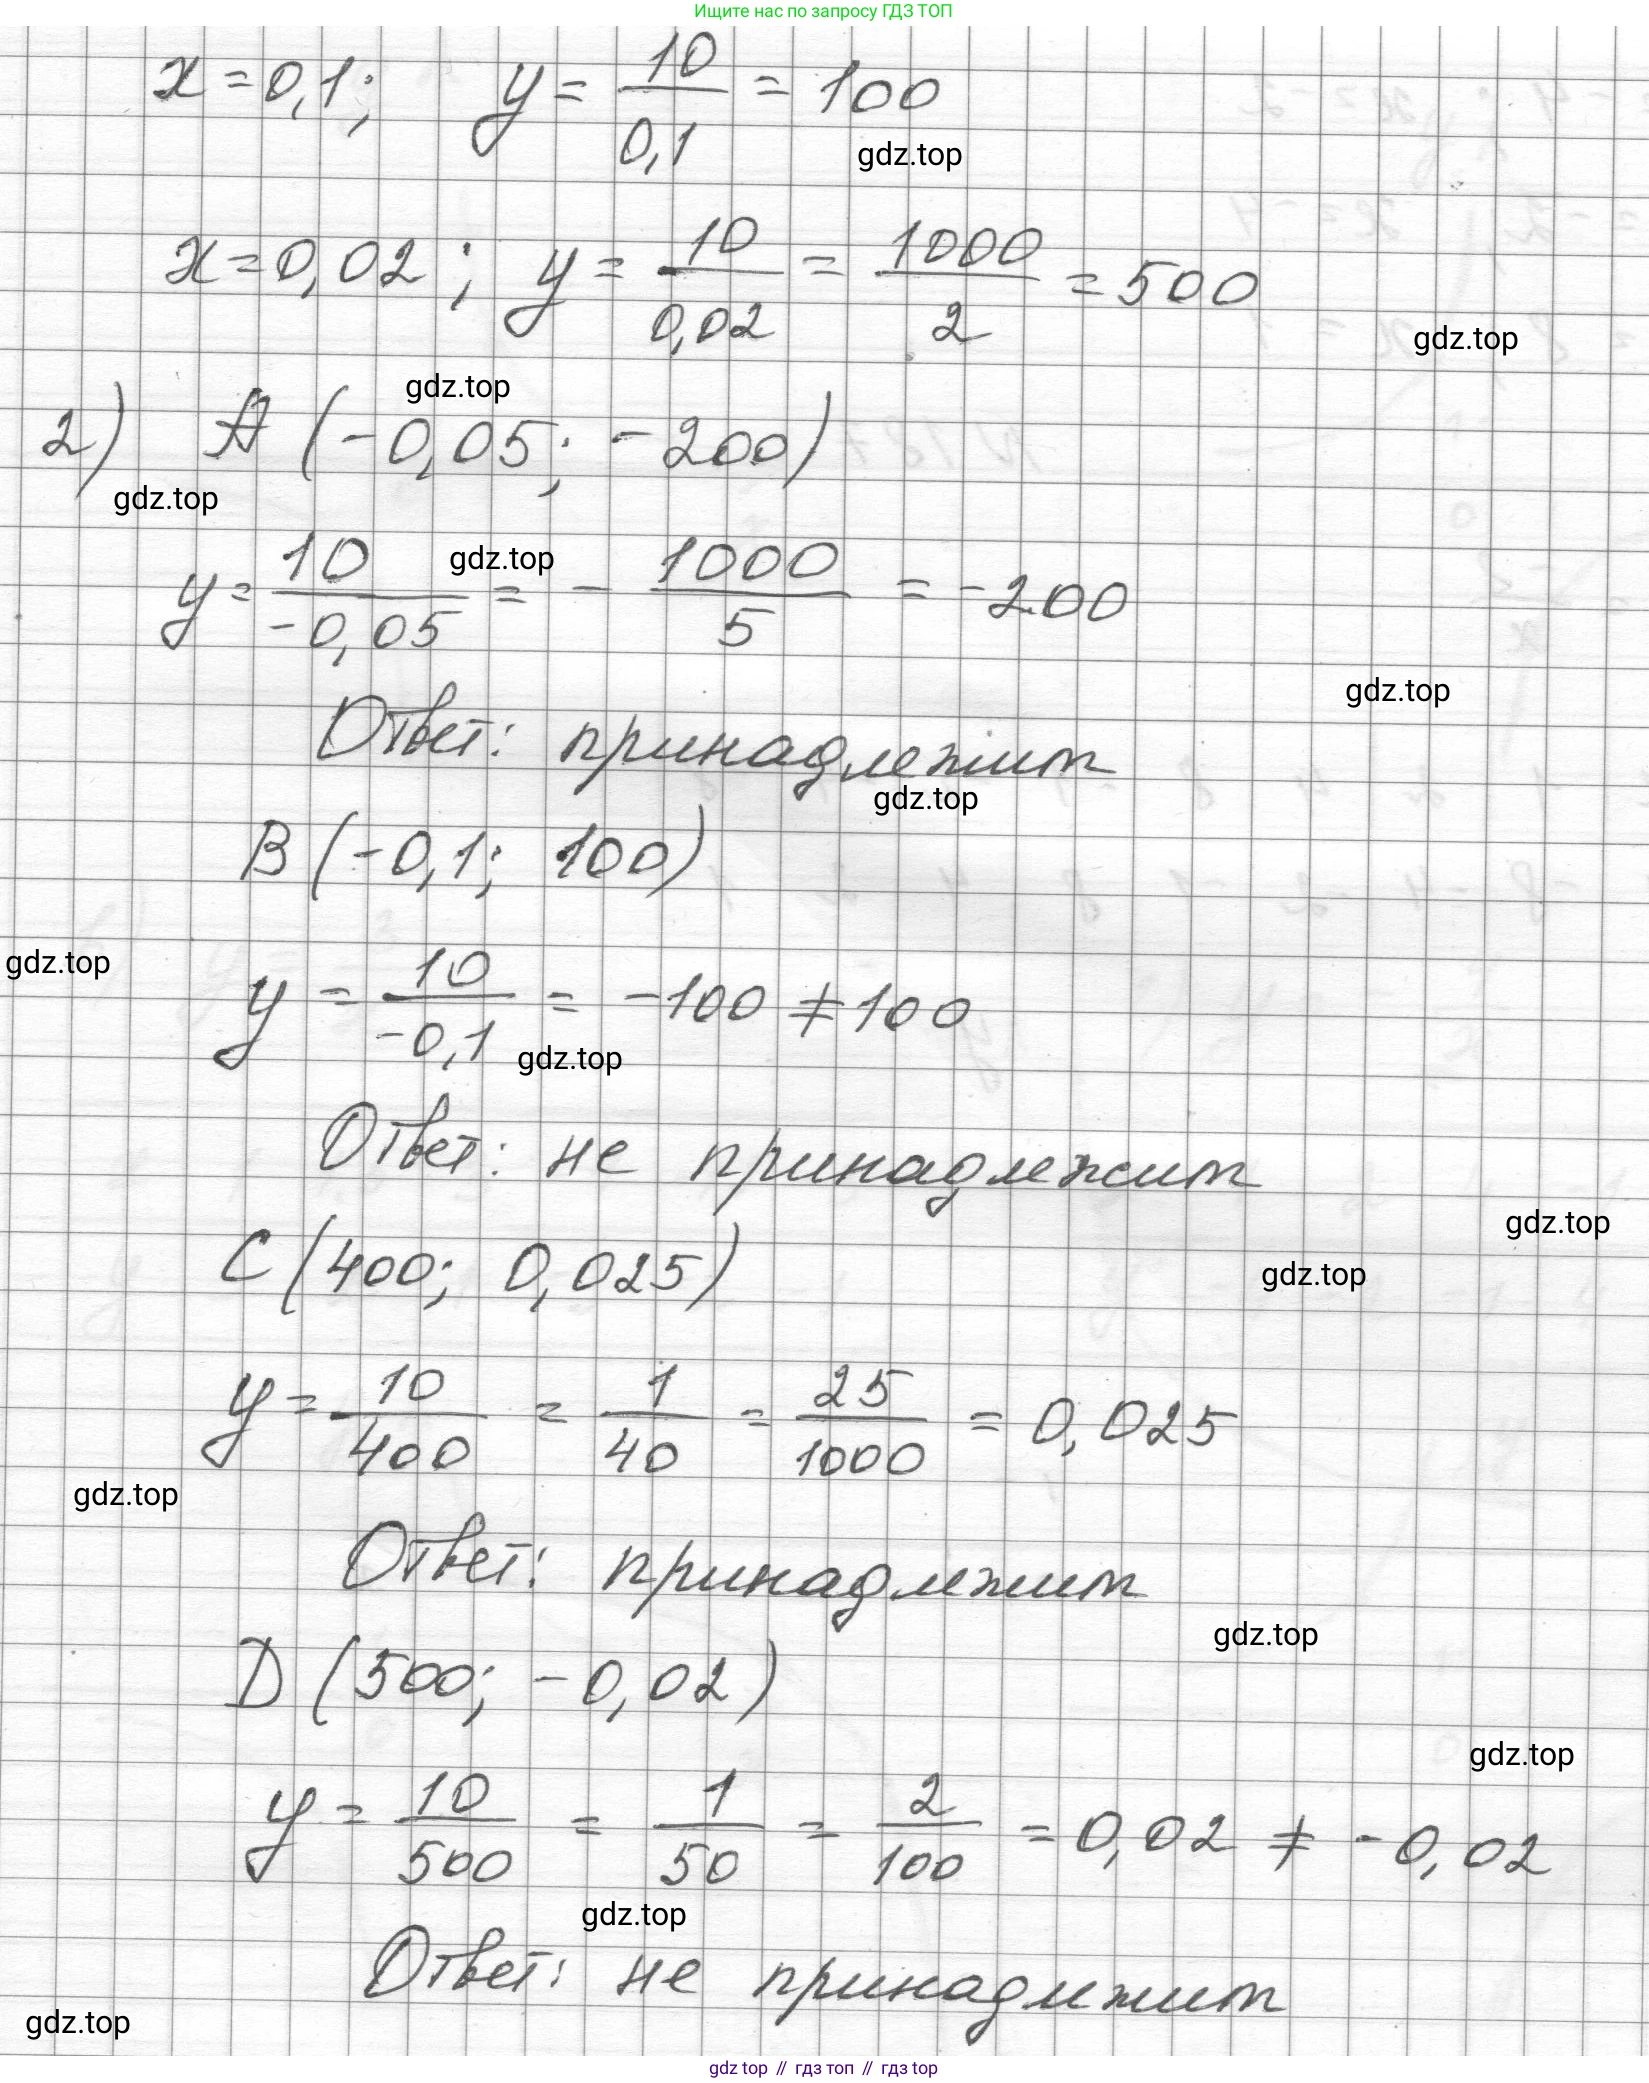 Ищите нас по запросу ГДЗ ТОП
x = 0,1; y = 10/0,1 = 100
gdz.top
x = 0,02; y = 10/0,02 = 1000/2 = 500
gdz.top
gdz.top
2) A (-0,05; -200)
gdz.top
y = 10/-0,05 = - 1000/5 = -200
gdz.top
gdz.top
Ответ: принадлежит
gdz.top
B (-0,1; 100)
gdz.top
y = 10/-0,1 = -100 ≠ 100
gdz.top
Ответ: не принадлежит
gdz.top
C (400; 0,025)
gdz.top
y = 10/400 = 1/40 = 25/1000 = 0,025
gdz.top
Ответ: принадлежит
gdz.top
D (500; -0,02)
gdz.top
y = 10/500 = 1/50 = 2/100 = 0,02 ≠ -0,02
gdz.top
Ответ: не принадлежит
gdz.top
gdz top // гдз топ // гдз top